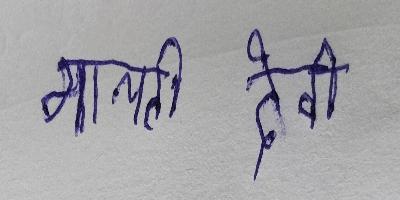 मालती देवी